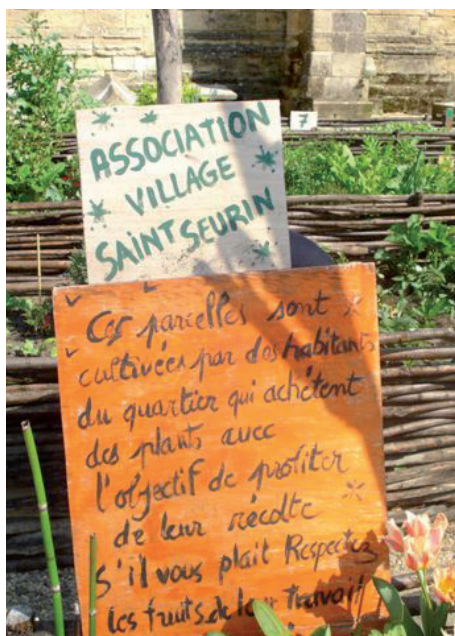 7
ASSOCIATION
VILLAGE
SAINT SEURIN
Ces parcelles sont
cultivées par des habitants
du quartier qui achètent
des plants avec
l'objectif de profiter
de leur récolte
s'il vous plait Respectez
les fruits de leur travail